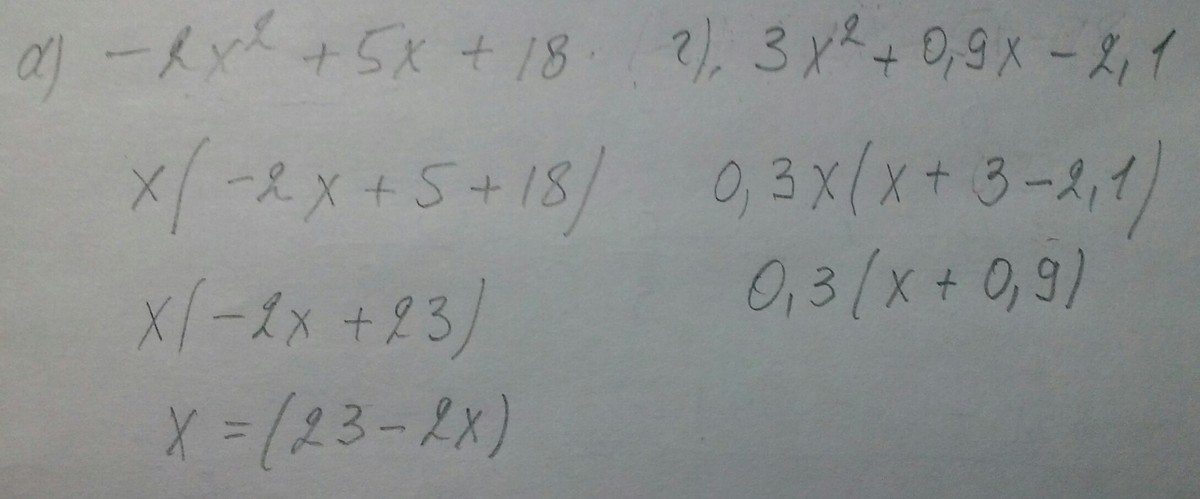 а) -2x² + 5x + 18
x(-2x + 5 + 18)
x(-2x + 23)
x = (23 - 2x)
г). 3x² + 0,9x - 2,1
0,3x(x + 3 - 2,1)
0,3(x + 0,9)